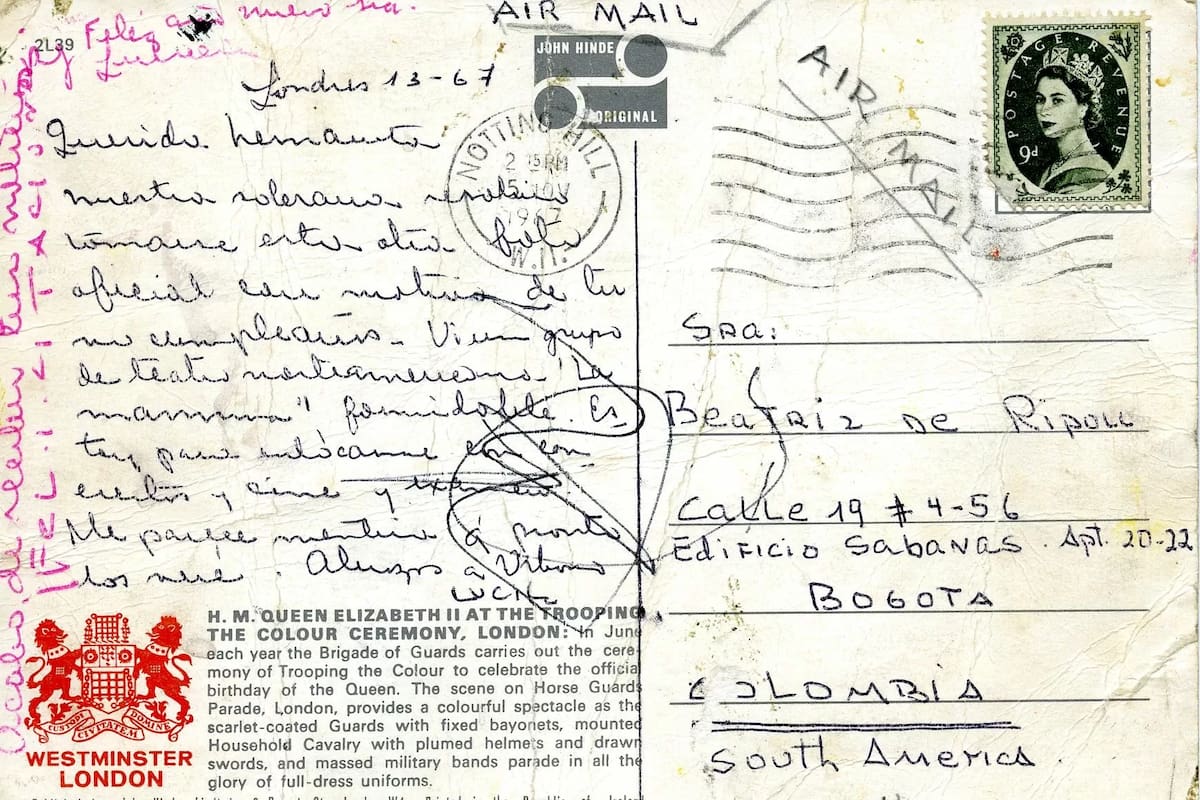 AIR MAIL
2L39
Feliz año nuevo
JOHN HINDE
ORIGINAL
Londres 13-67
NOTTING HILL
2 15 PM
5 NOV
1967
W.11.
AIR MAIL
POSTAGE REVENUE
9d
Querida hermanita
nuestra soberana resolvió
tomarse esta otra foto
oficial con motivo de tu
no cumpleaños. Vi un grupo
de teatro norteamericano "La
mamma" formidable. Es
toy para enlocarme con con
ciertos y cine y
Me parece mentira q pronto
los veré. Abrazos a
LUCIA
Acabo de recibir tus
FELICITACIONES
Sra:
Beatriz de Ripoll
Calle 19 # 4-56
Edificio Sabanas. Apt. 20-22
BOGOTA
COLOMBIA
South America.
H. M. QUEEN ELIZABETH II AT THE TROOPING
THE COLOUR CEREMONY, LONDON: In June
each year the Brigade of Guards carries out the cere-
mony of Trooping the Colour to celebrate the official
birthday of the Queen. The scene on Horse Guards
Parade, London, provides a colourful spectacle as the
scarlet-coated Guards with fixed bayonets, mounted
Household Cavalry with plumed helmets and drawn
swords, and massed military bands parade in all the
glory of full-dress uniforms.
CUSTODI CIVITATEM DOMINE
WESTMINSTER
LONDON